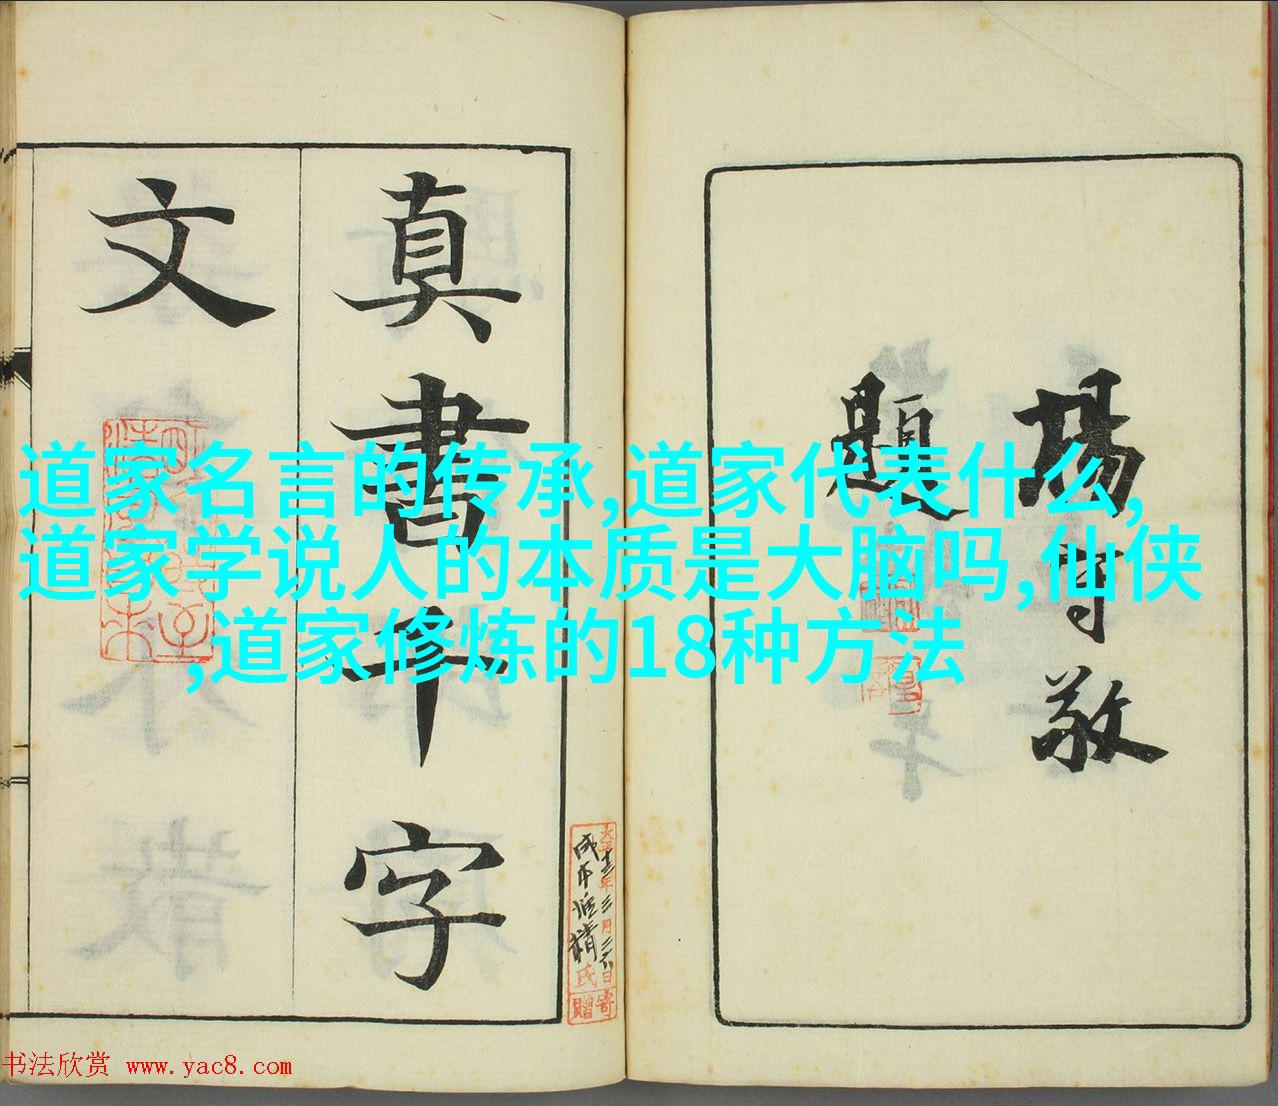 真書千字
文
楊守敬
題
道家名言的传承,道家代表什么,
道家学说人的本质是大脑吗,仙侠
,道家修炼的18种方法
大正十三年三月二六日寄
氏贈
书法欣赏 www.yac8.com